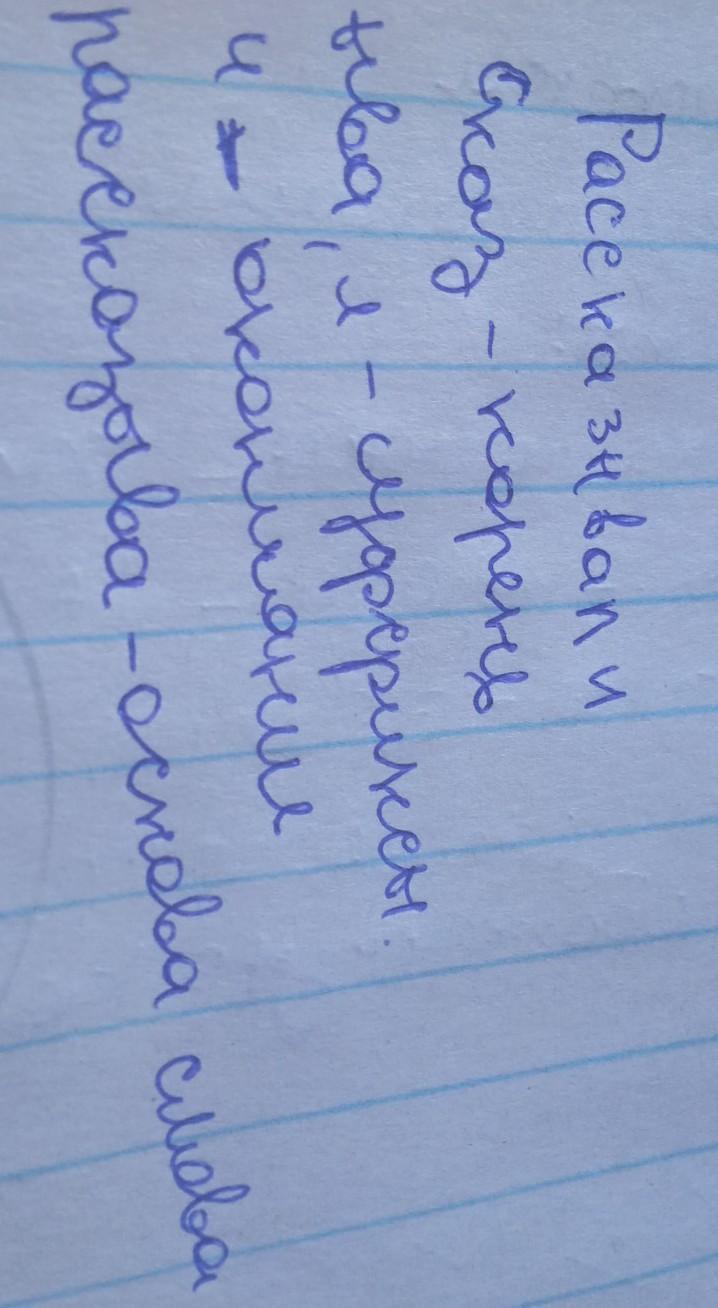 Рассказывали
Сказ - корень
ыва, л - суффиксы.
и - окончание
рассказыва - основа слова